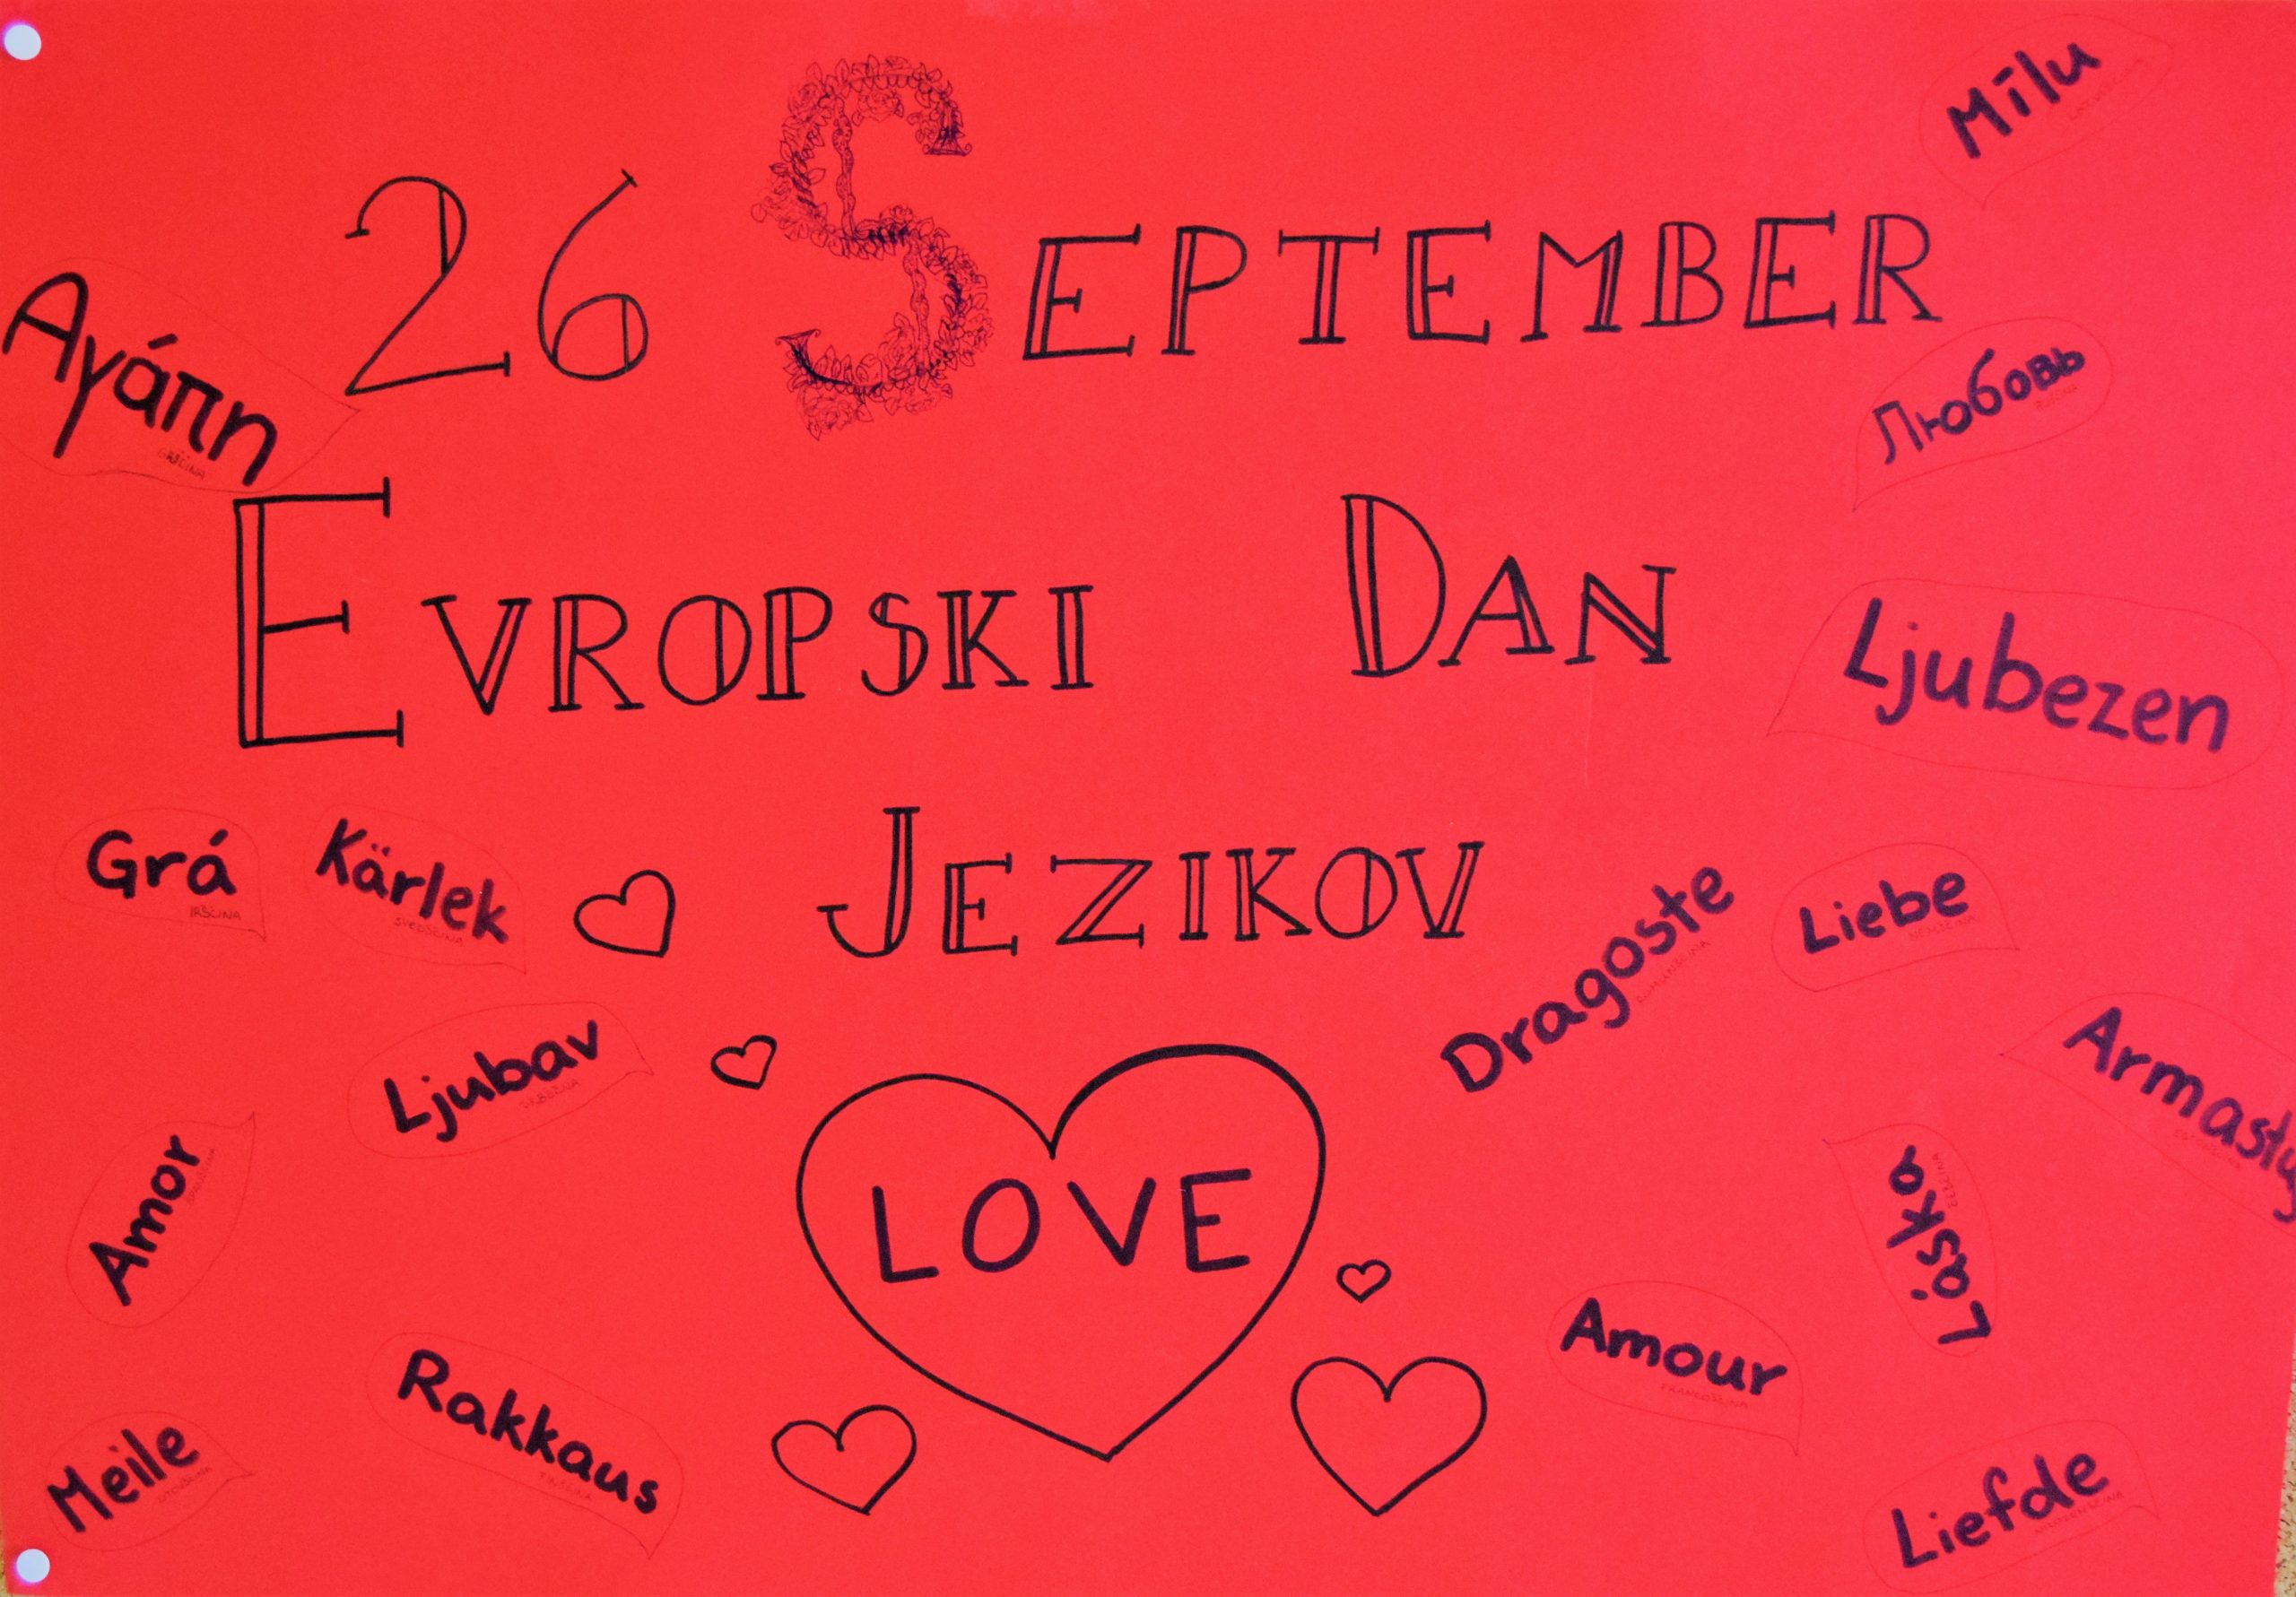 Mīlu
26 SEPTEMBER
Αγάπη
GRŠČINA
Любовь
EVROPSKI DAN
Ljubezen
JEZIKOV
Grá
IRŠČINA
Kärlek
ŠVEDŠČINA
Dragoste
ROMUNŠČINA
Liebe
NEMŠČINA
Ljubav
SRBŠČINA
Armastus
Amor
LOVE
Láska
ČEŠČINA
Amour
FRANCOŠČINA
Rakkaus
FINŠČINA
Meile
Liefde
NIZOZEMŠČINA